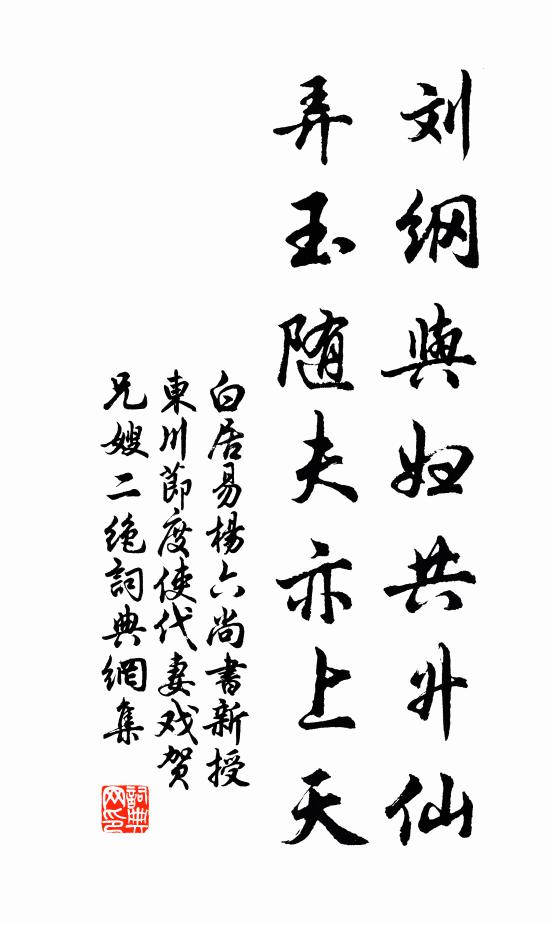 刘纲與妇共升仙
弄玉随夫亦上天
白居易楊六尚書新授
東川節度使代妻戏贺
兄嫂二绝詞典網集
詞典网印